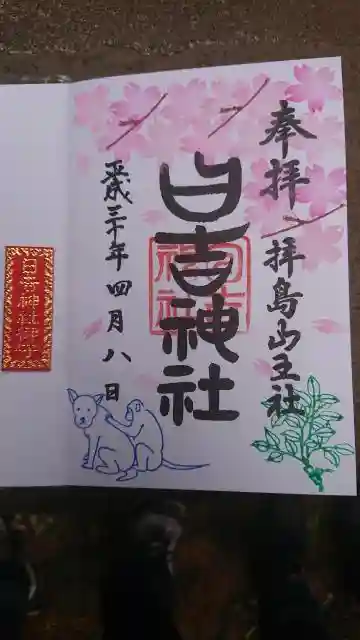 奉拝 拝島山王社
日吉神社
平成三十年四月八日
日吉神社